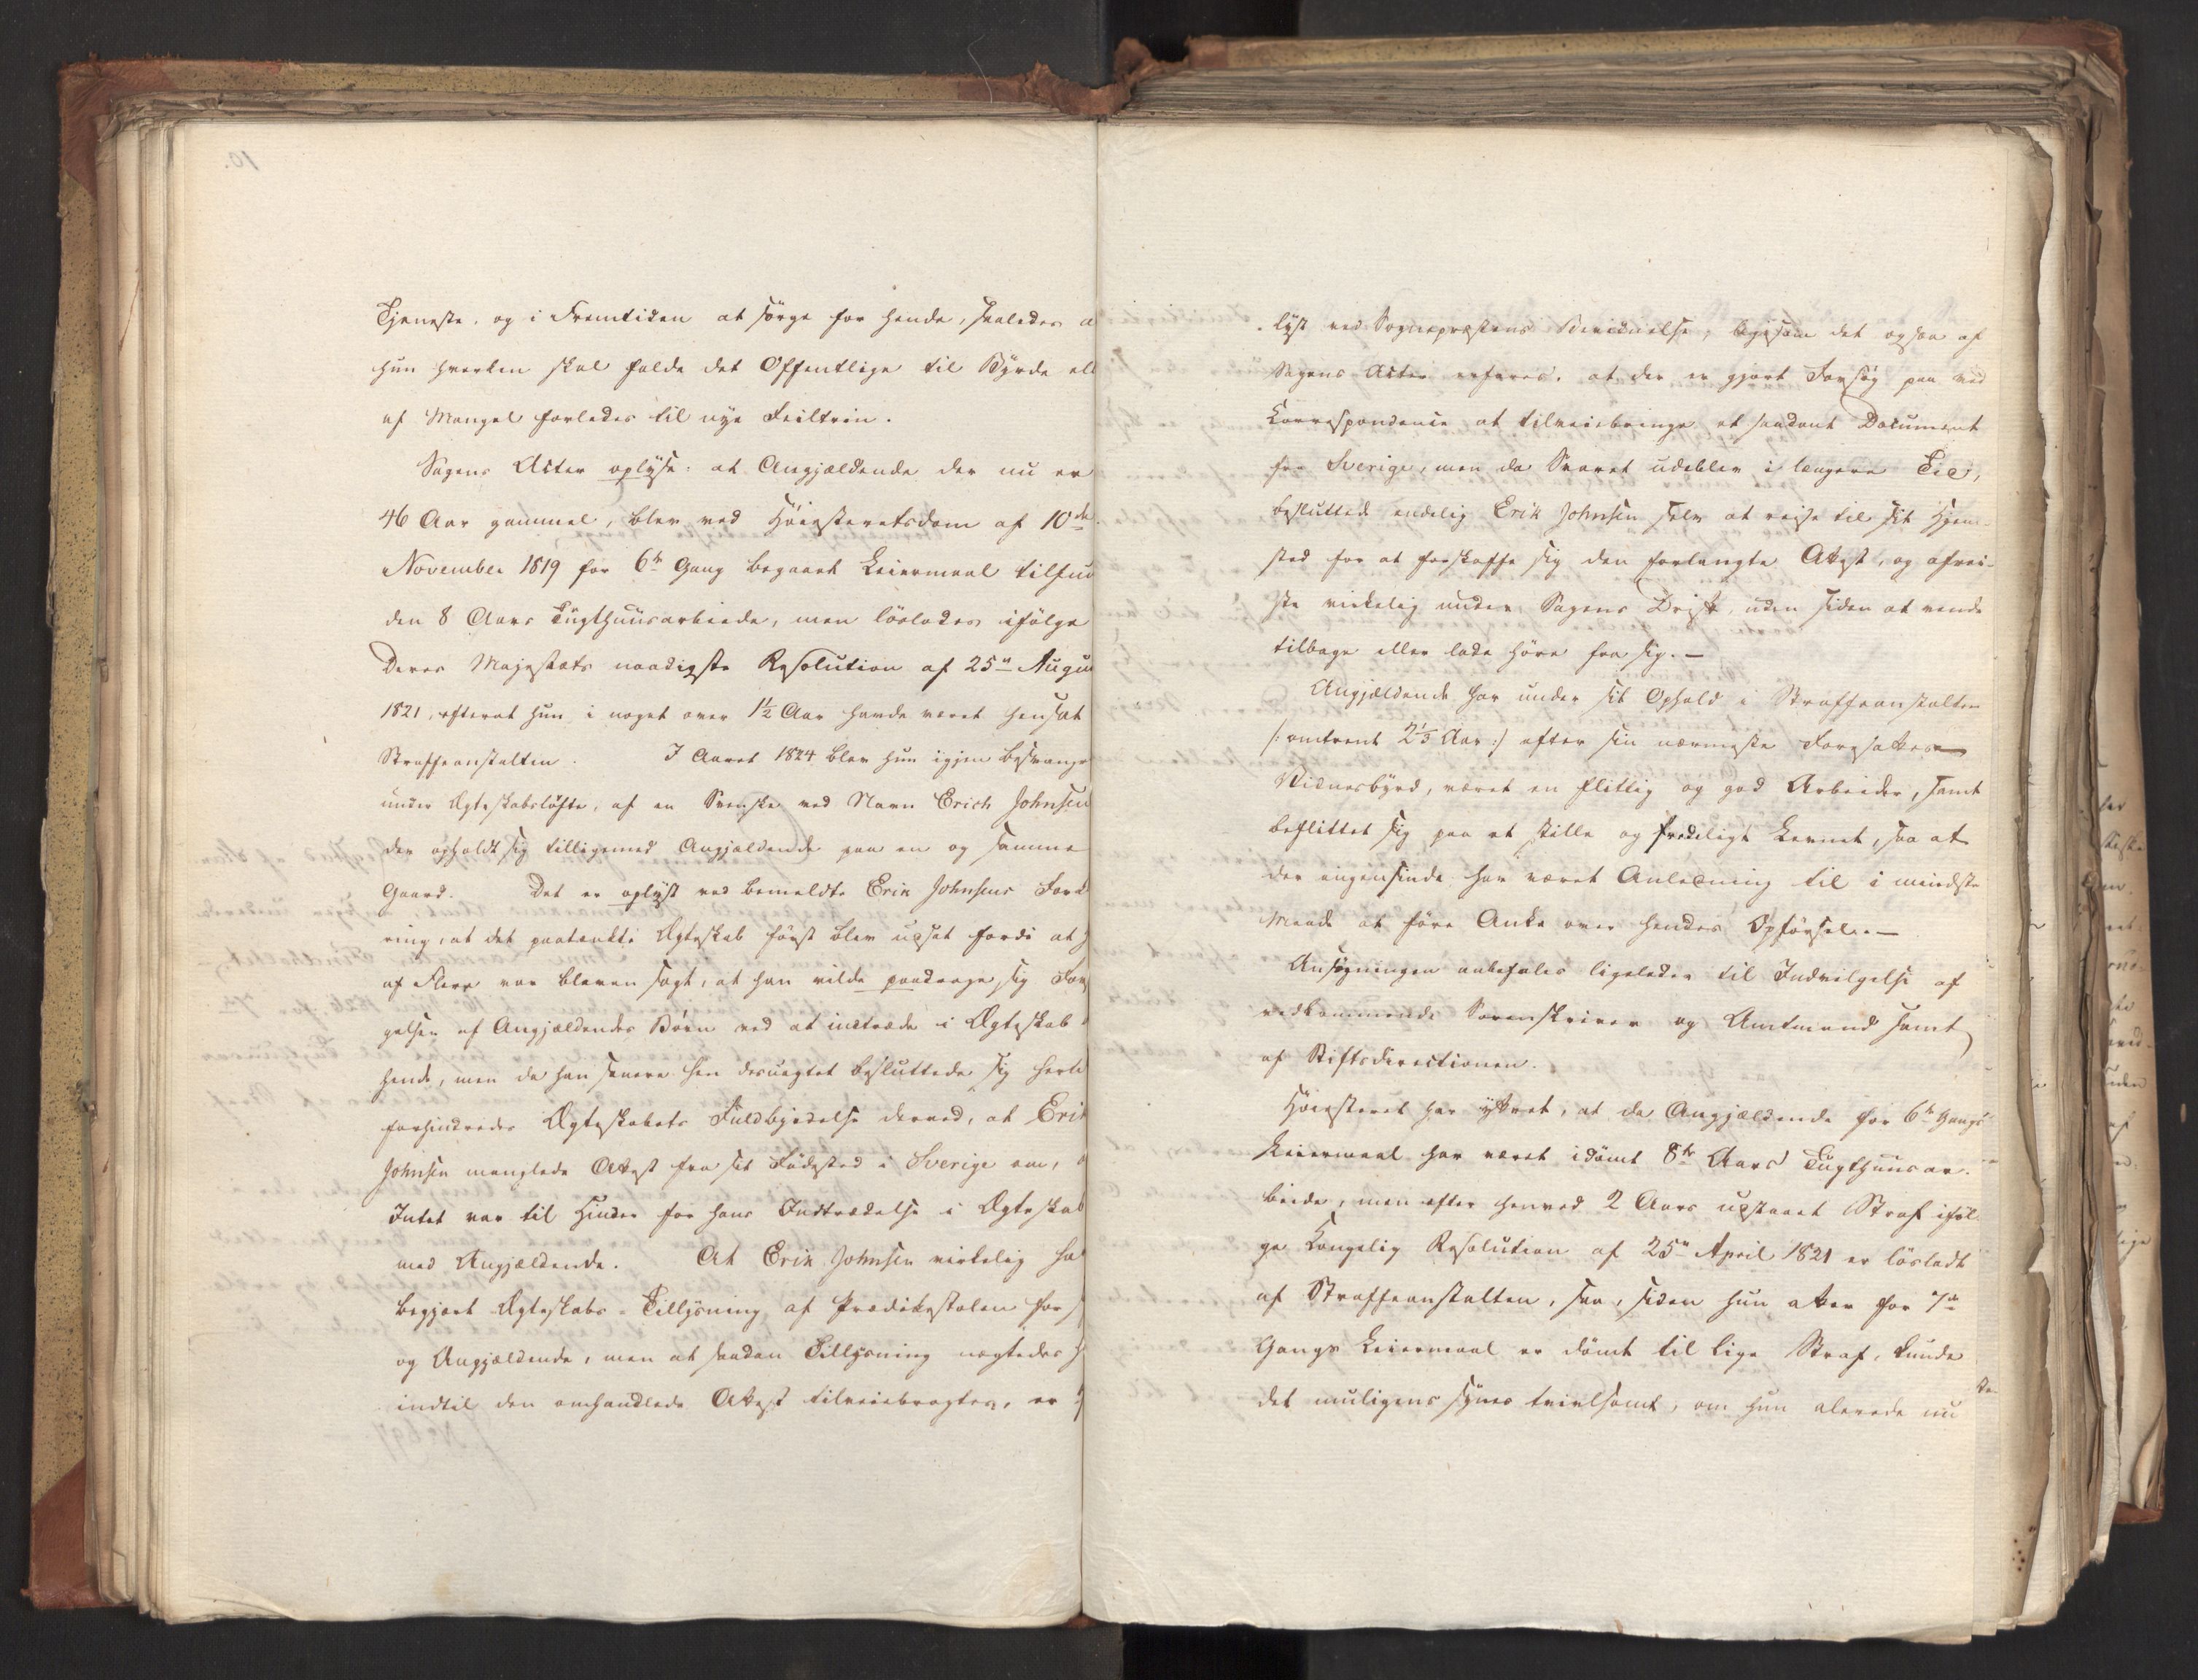 Tjeneste, og i Fremtiden at sørge for hende, saaledes a
hun hverken skal falde det Offentlige til Byrde ell
af Mangel forledes til nye Feiltrin.
Sagens Acter oplyse: at Angjældende der nu er
46 Aar gammel, blev ved Høiesteretsdom af 10de
November 1819 for 6te Gang begaaet Leiermaal tilfun
den 8 Aars Tugthuusarbeide, men løslodes ifølge
Deres Majestæts naadigste Resolution af 25de Augu
1821, efterat hun i noget over 1½ Aar havde været hensat
Straffeanstalten. I Aaret 1824 blev hun igjen besvangr
under Ægteskabsløfte, af en Svenske ved Navn Erich Johnsen
der opholdt sig tilligemed Angjældende paa en og samme
Gaard. Det er oplyst ved bemeldte Erik Johnsens Fork
ring, at det paatænkte Ægteskab først blev udsat fordi at h
af Flere var bleven sagt, at han vilde paadrage sig For
gelsen af Angjældendes Børn ved at indtræde i Ægteskab
hende, men da han senere hen desuagtet besluttede sig herti
forhindredes Ægteskabets Fuldbyrdelse derved, at Erik
Johnsen manglede Attest fra sit Fødested i Sverige om,
Intet var til Hinder for hans Indtrædelse i Ægteskab
med Angjældende. At Erik Johnsen virkelig ha
begjært Ægteskabs-Tillysning af Prædikestolen for s
og Angjældende, men at saadan Tillysning nægtedes h
indtil den omhandlede Attest tilveiebragtes, er
lyst ved Sognepræstens Bevidnelse, ligesom det ogsaa af
Sagens Acter erfares, at der er gjort Forsøg paa ved
Correspondence at tilveiebringe et saadant Document
fra Sverige, men da Svaret udeblev i længere Tid,
besluttede endelig Erik Johnsen selv at reise til sit Hjem-
sted for at forskaffe sig den forlangte Attest, og afrei-
ste virkelig under Sagens Drift, uden siden at vende
tilbage eller lade høre fra sig.—
Angjældende har under sit Ophold i Straffeanstalten
/: omtrent 2⅓ Aar :/ efter sin nærmeste Foresattes
Vidnesbyrd, været en flittig og god Arbeider, samt
beflittet sig paa et stille og fredeligt Levnet, saa at
der ingensinde har været Anledning til i mindste
Maade at føre Anke over hendes Opførsel.—
Ansøgningen anbefales ligeledes til Indvilgelse af
vedkommende Sorenskriver og Amtmand samt
af Stiftsdirectionen.
Høiesteret har yttret, at da Angjældende for 6te Gangs
Leiermaal har været idømt 8te Aars Tugthuusar-
beide, men efter henved 2 Aars udstaaet Straf iføl-
ge Kongelig Resolution af 25de April 1821 er løsladt
af Straffeanstalten, saa, siden hun atter for 7de
Gangs Leiermaal er dømt til lige Straf, kunde
det muligens synes tvivlsomt, om hun allerede nu